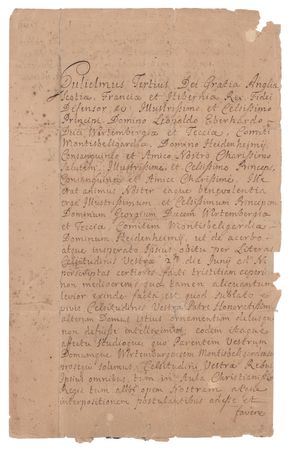 Gulielmus Tertius Dei Gratia Angliæ
Scotiæ, Franciæ et Hiberniæ Rex Fidei
Defensor &c Illustrissimo et Celsissimo
Principi Domino Leopoldo Eberhardo
Duci Wirtembergiæ et Tecciæ, Comiti
Montisbelgardiæ Domino Heidenhemij
Consanguineo et Amico Nostro Charissimo
Salutem, Illustrissime et Celsissime Princeps,
Consanguinee et Amice Charissime,
erat animus Noster eaque benevolentia
erga Illustrissimum et Celsissimum Principem
Dominum Georgium Ducem Wirtembergiæ
et Tecciæ, Comitem Montisbelgardiæ
Dominum Heidenhemij, ut de acerbo
atque insperato Ipsius obitu per Literas
Celsitudinis Vestræ 2° Junij ad Nos
perscriptas certiores facti tristitiam
non mediocrem; quæ tamen aliquantum
levior exinde facta est, quod sublato
Celsitudinis Vestræ Patre Honoratissimo
alterum Domus istius ornamentum
non defuisse intellexerimus, eodem itaque
affectu studioque quo Parentem Vestrum
Domumque Wirtemburgicam
prosequi solemus, Celsitudini Vestræ Rebus
Ipsius omnibus, tum in Aula Christianissimi
Regis tum alibi opem Nostram atque
interpositionem postulantibus adesse et
favere